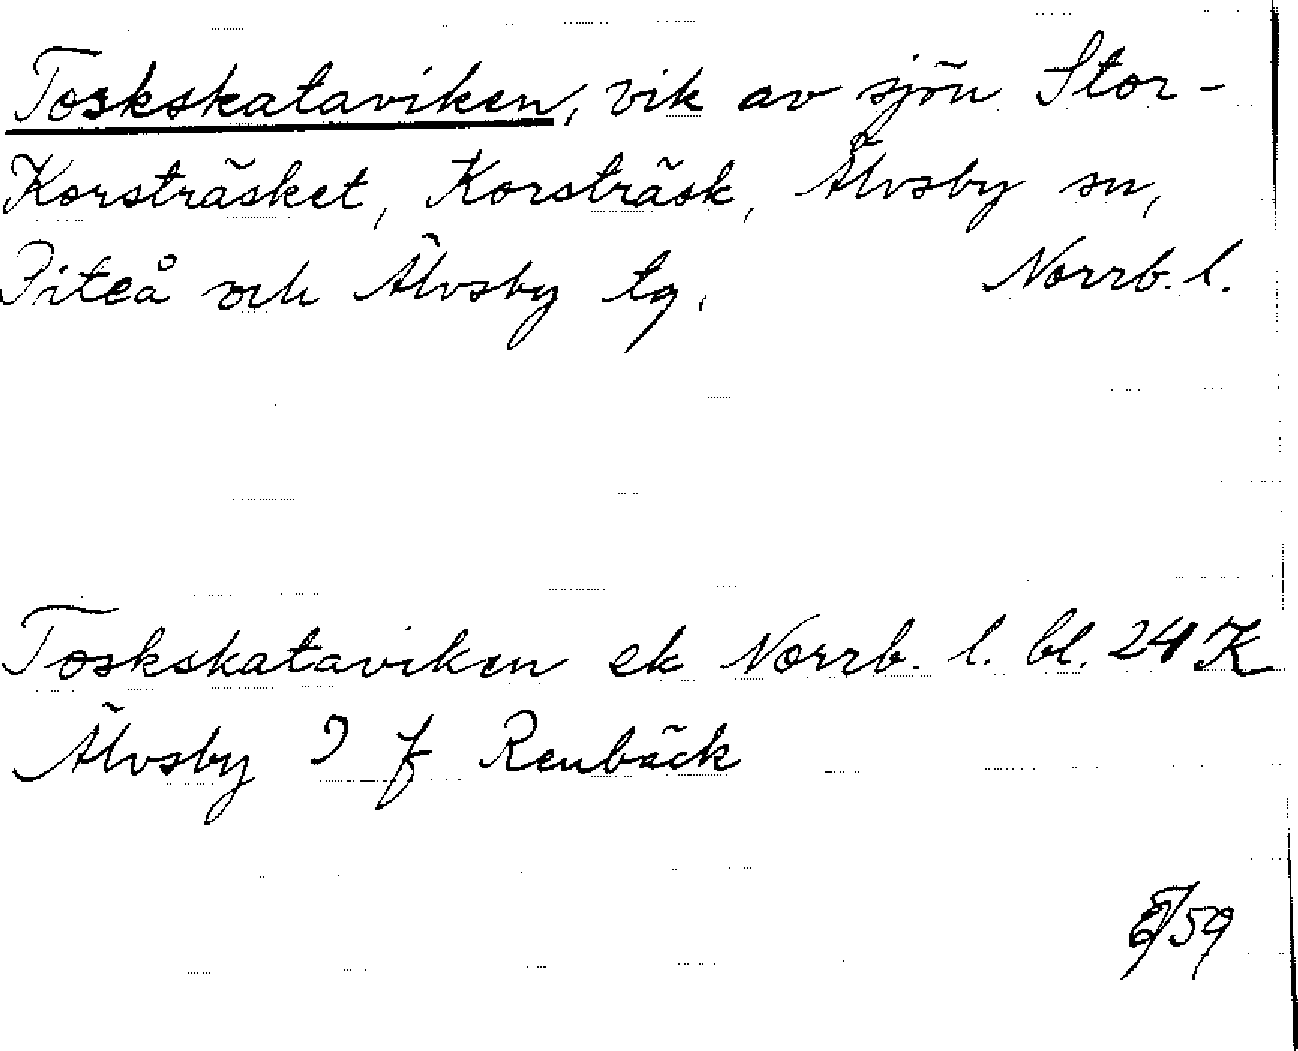 Toskskataviken, vik av sjön Stor-
Korsträsket, Korsträsk, Älvsby sn,
Piteå och Älvsby tg. Norrb. l.
Toskskataviken ek Norrb. l. bl. 24 K
Älvsby J f Renbäck
/59